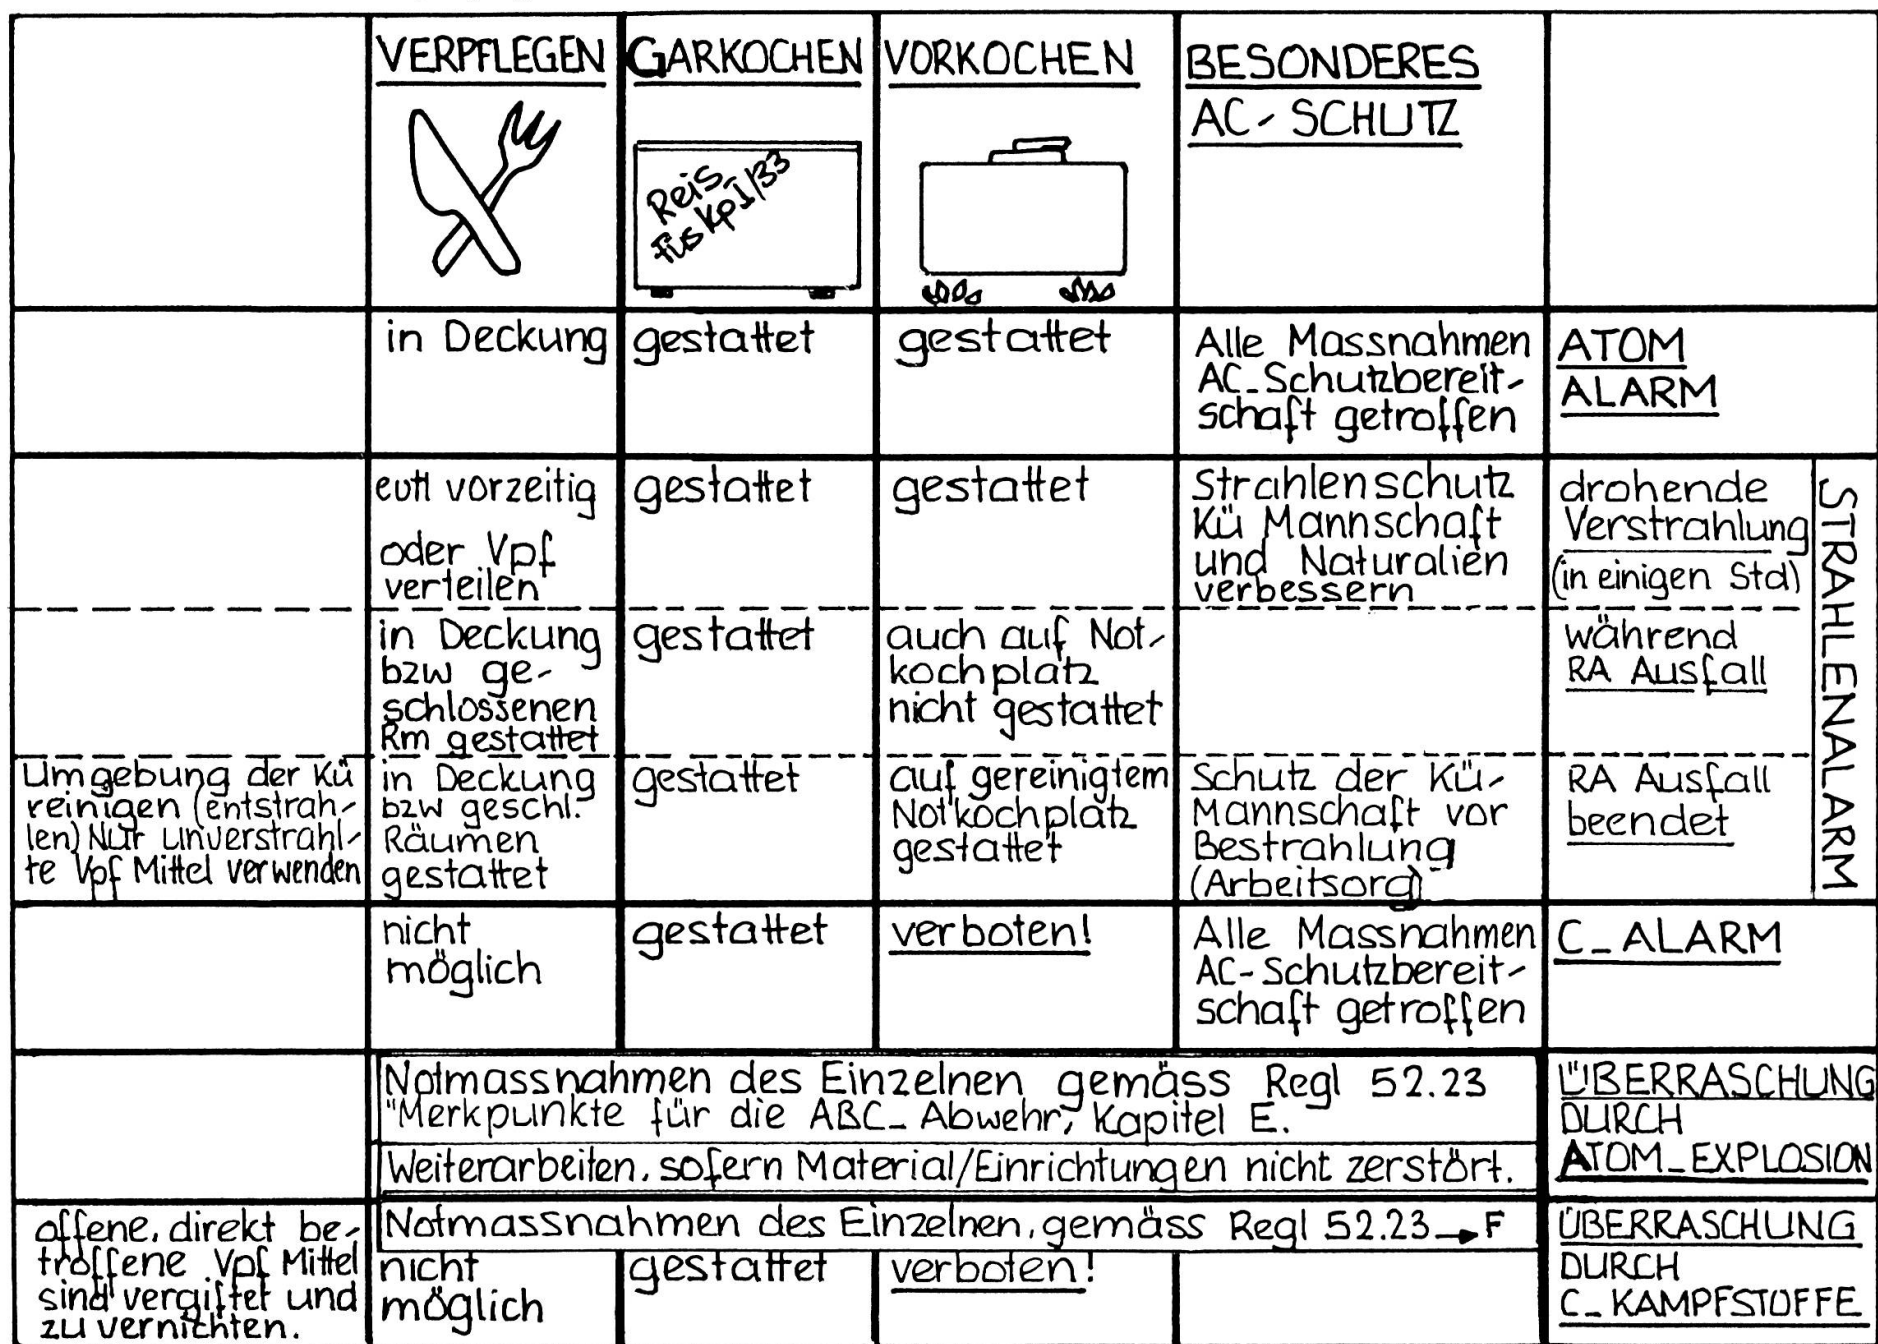 VERPFLEGEN
GARKOCHEN
VORKOCHEN
BESONDERES
AC-SCHUTZ
Reis
Füs Kp I/33
in Deckung
gestattet
gestattet
Alle Massnahmen
AC-Schutzbereit-
schaft getroffen
ATOM
ALARM
evtl vorzeitig
oder Vpf
verteilen
gestattet
gestattet
Strahlenschutz
Kü Mannschaft
und Naturalien
verbessern
drohende
Verstrahlung
(in einigen Std)
STRAHLENALARM
in Deckung
bzw ge-
schlossenen
Rm gestattet
gestattet
auch auf Not-
kochplatz
nicht gestattet
während
RA Ausfall
Umgebung der Kü
reinigen (entstrah-
len) Nur unverstrahl-
te Vpf Mittel verwenden
in Deckung
bzw geschl.
Räumen
gestattet
gestattet
auf gereinigtem
Notkochplatz
gestattet
Schutz der Kü-
Mannschaft vor
Bestrahlung
(Arbeitsorg)
RA Ausfall
beendet
nicht
möglich
gestattet
verboten!
Alle Massnahmen
AC-Schutzbereit-
schaft getroffen
C-ALARM
Notmassnahmen des Einzelnen gemäss Regl 52.23
"Merkpunkte für die ABC-Abwehr, Kapitel E.
Weiterarbeiten, sofern Material/Einrichtungen nicht zerstört.
ÜBERRASCHUNG
DURCH
ATOM-EXPLOSION
offene, direkt be-
troffene Vpf Mittel
sind vergiftet und
zu vernichten.
Notmassnahmen des Einzelnen, gemäss Regl 52.23 → F
nicht
möglich
gestattet
verboten!
ÜBERRASCHUNG
DURCH
C-KAMPFSTOFFE